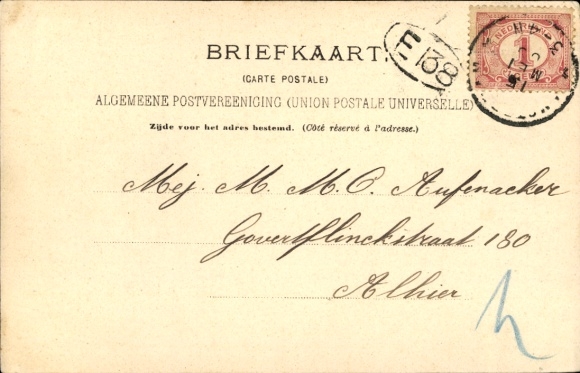 BRIEFKAART.
(CARTE POSTALE)
ALGEMEENE POSTVEREENIGING (UNION POSTALE UNIVERSELLE)
Zijde voor het adres bestemd. (Côté réservé à l'adresse.)
E 138
NEDERLAND
1
CENT
15 MEI
Mej. M. M. C. Aufenacker
Govertflinckstraat 180
Alhier